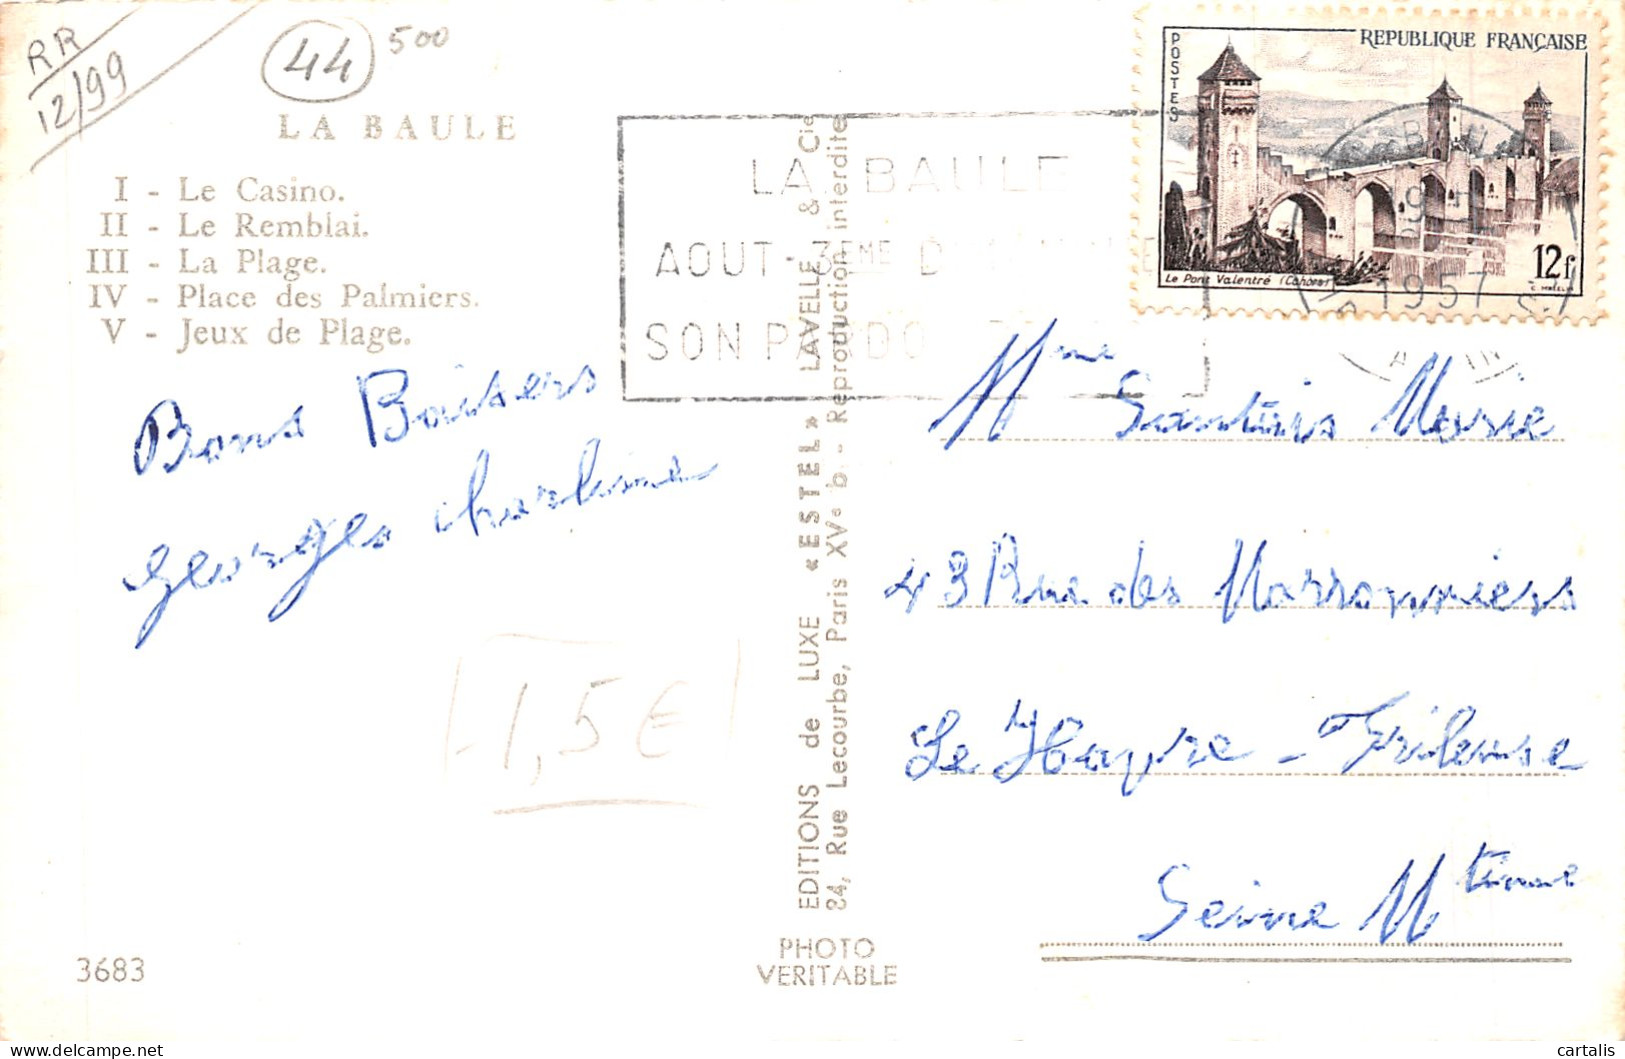 RR
12/99
44
500
LA BAULE
I - Le Casino.
II - Le Remblai.
III - La Plage.
IV - Place des Palmiers.
V - Jeux de Plage.
Bons Baisers
Georges Charline
1,5€
3683
EDITIONS de LUXE « ESTEL » LAVELLE & Cie
84, Rue Lecourbe, Paris XVe b - Reproduction interdite
PHOTO
VERITABLE
LA BAULE
AOUT - 3EME
SON
POSTES
REPUBLIQUE FRANÇAISE
Le Pont Valentré (Cahors)
12f
1957
Mme
Marie
43 Rue des Marronniers
Le Havre - Frileuse
Seine Mtime
cartalis